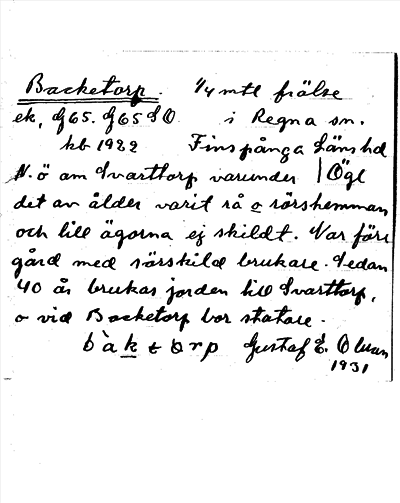 Backetorp. 1/4 mtl frälse
ek, Gf 65. Gf 65 SO i Regna sn.
kb 1922 Finspånga Länshd
N. ö om Svarttorp varunder | Ögl
det av ålder varit rå o rörshemman
och till ägorna ej skildt. Var förr
gård med särskild brukare. Sedan
40 år brukas jorden till Svarttorp,
o vid Backetorp bor statare.
bàktorp Gustaf E. Olsson
1931